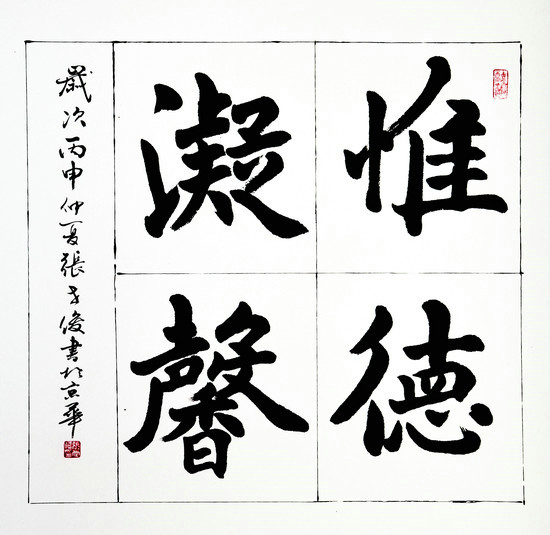 惟德
凝馨
歲次丙申仲夏張俊書於京華